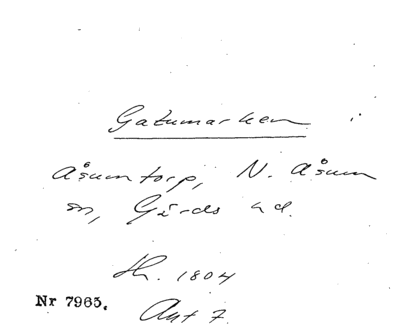 Gatumarken i
Åsumtorp, N. Åsum
sn, Gärds hd.
Sk. 1804
Nr 7965.
Akt 7